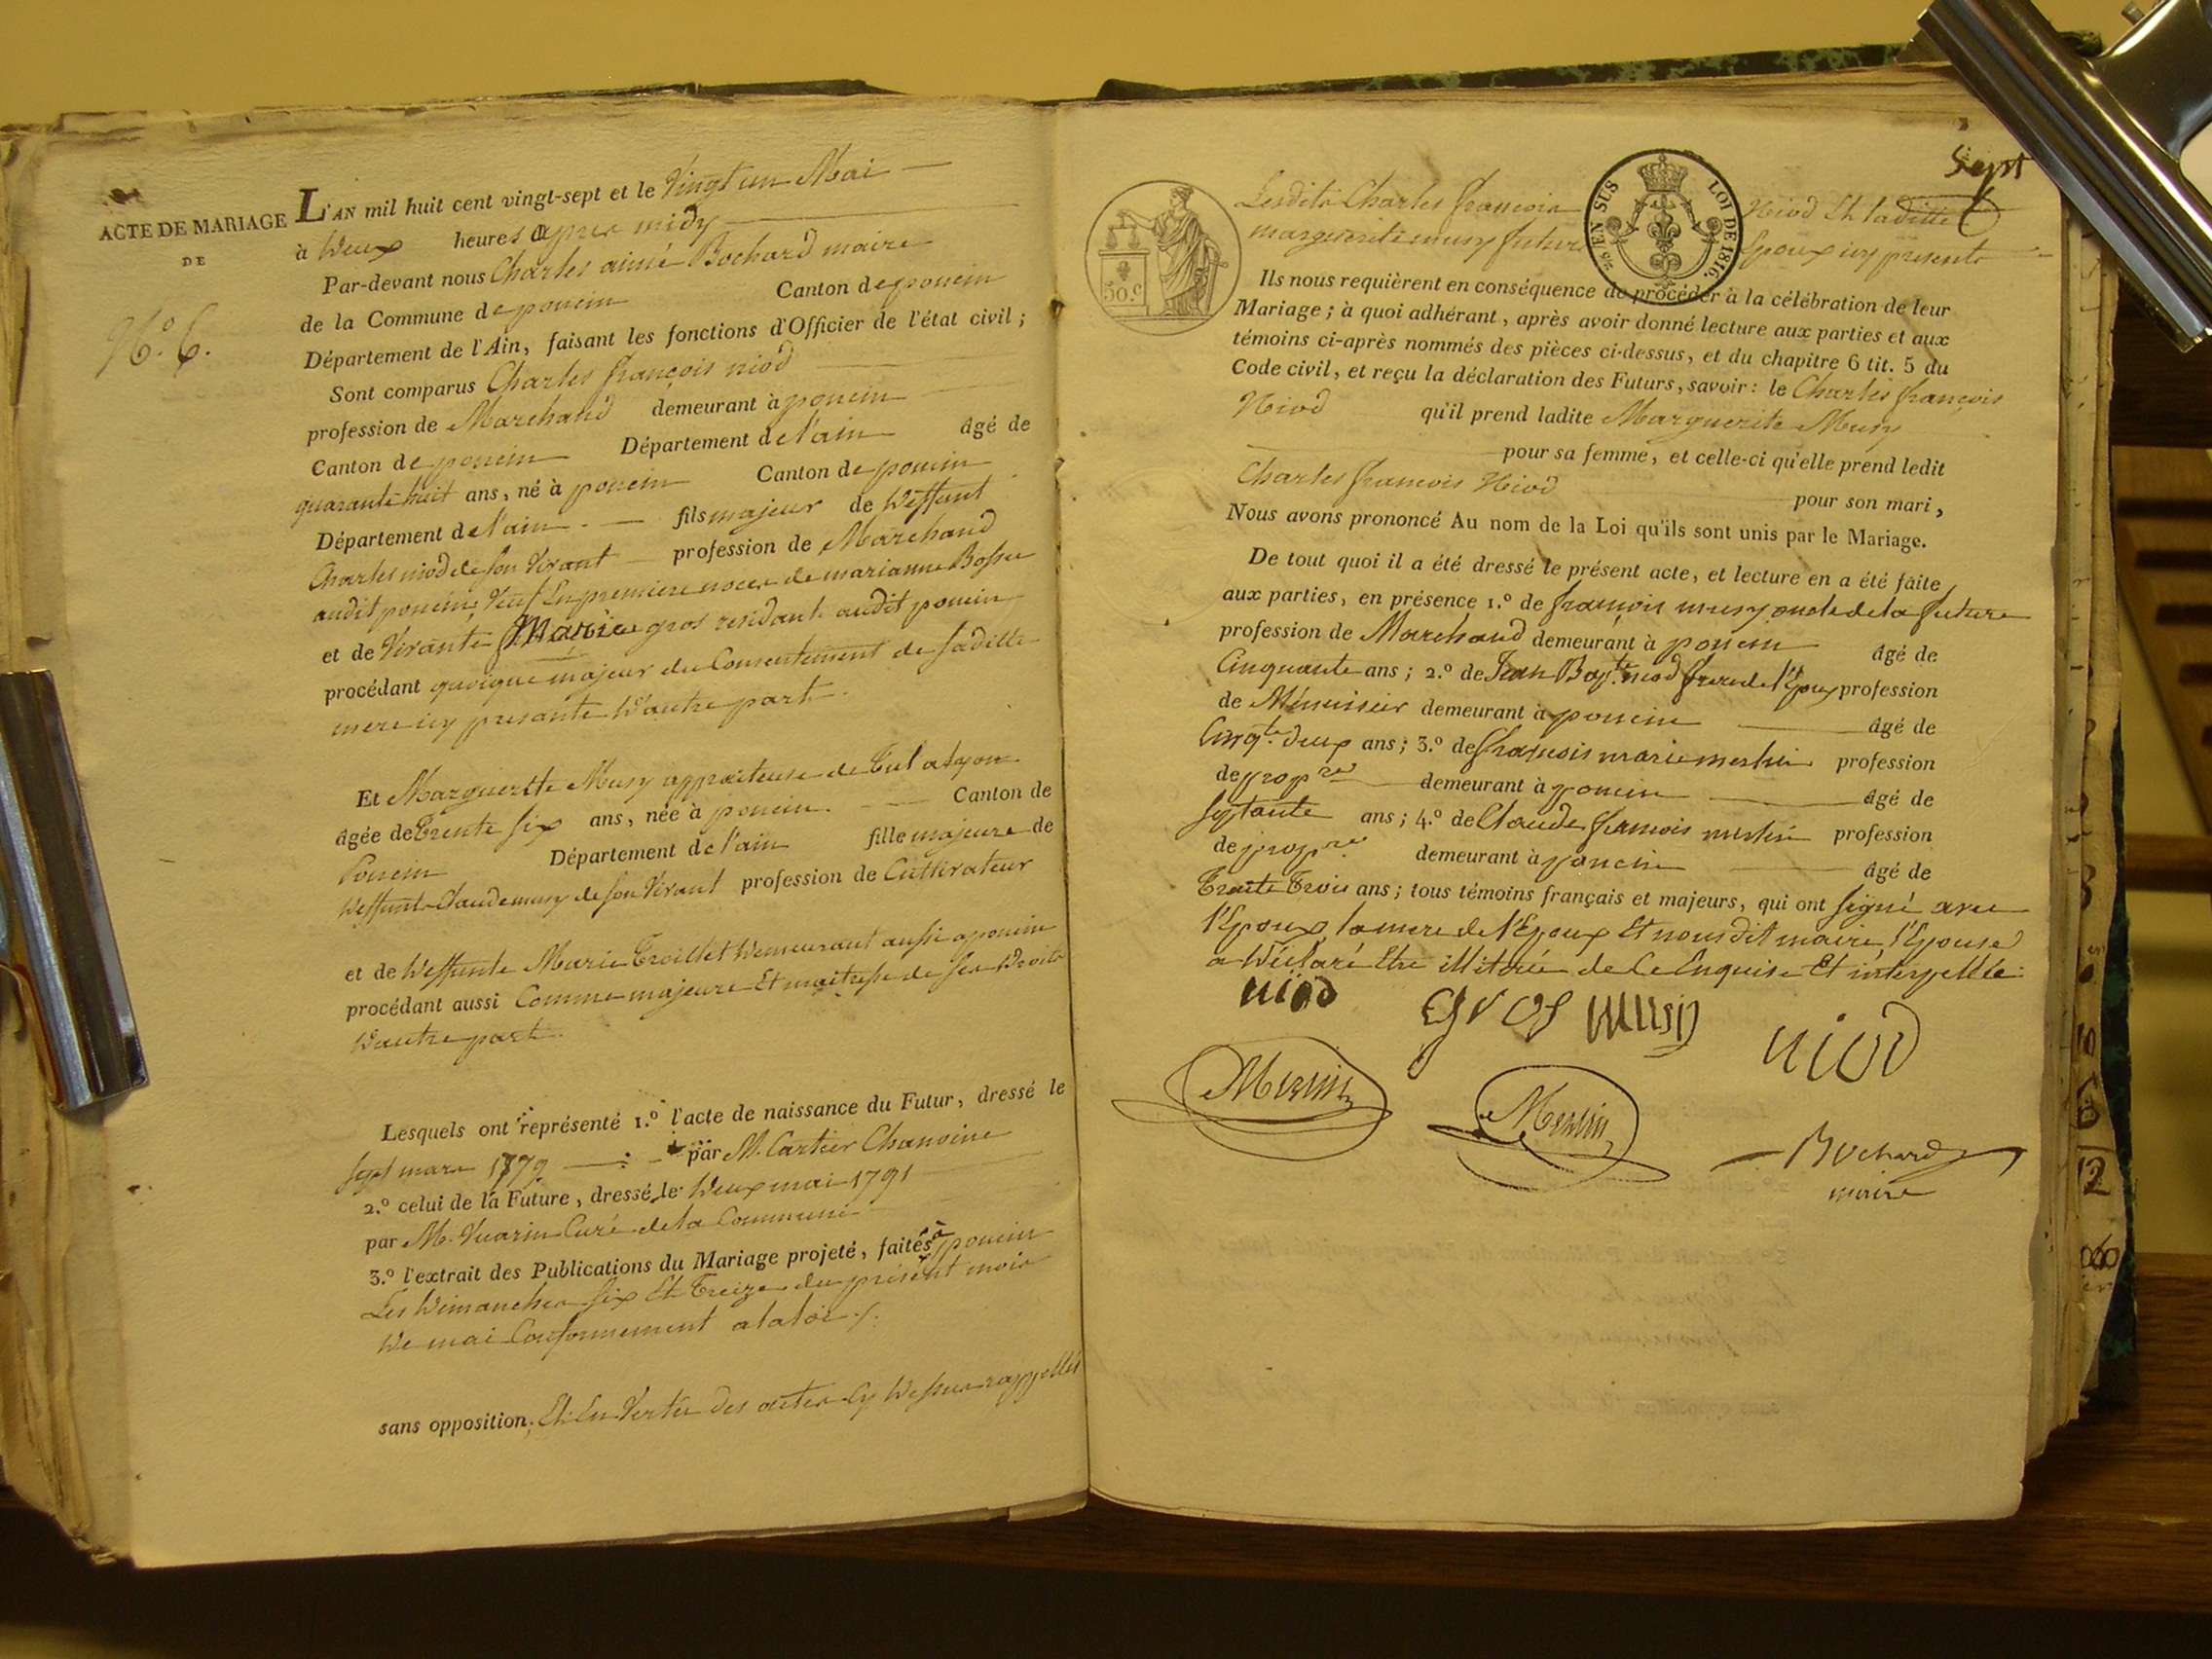 ACTE DE MARIAGE
DE
N.º 6.
L'AN mil huit cent vingt-sept et le Vingt un Mai
à Deux heures apres midy
Par-devant nous Charles aimé Bochard maire
de la Commune de poncin Canton de poncin
Département de l'Ain, faisant les fonctions d'Officier de l'état civil;
Sont comparus Charles françois niod
profession de Marchand demeurant à poncin
Canton de poncin Département de l'ain âgé de
quarante huit ans, né à poncin Canton de poncin
Département de l'ain fils majeur de Deffunt
Charles niod de son Vivant profession de Marchand
audit poncin, Veuf En premiere noces de marianne Bossu
et de Vivante Marie gros residant audit poncin
procédant quoique majeur du Consentement de sa ditte
mere icy presante D'autre part.
Et Marguerite Musy de Tul a lyon
âgée de Trente six ans, née à poncin Canton de
Poncin Département de l'ain fille majeure de
Deffunt Claude musy de son Vivant profession de Cultivateur
et de Deffunte Marie Troillet Demeurant aussi a poncin
procédant aussi Comme majeure Et maitresse de ses Droits
D'autre part.
Lesquels ont représenté 1.º l'acte de naissance du Futur, dressé le
sept mars 1779 par M. Cartier Chanoine
2.º celui de la Future, dressé le Deux mai 1791
par M. Vuarin Curé de la Commune
3.º l'extrait des Publications du Mariage projeté, faites à poncin
Les Dimanches six Et Treize du présent mois
De mai Conformement a la loi ./.
sans opposition; Et En Vertu des actes Cy Dessus rappellés
Sept
50.C
EN SUS LOI DE 1816.
Lesdits Charles françois Niod Et laditte
marguerite musy futurs Epoux icy presents
Ils nous requièrent en conséquence de procéder à la célébration de leur
Mariage; à quoi adhérant, après avoir donné lecture aux parties et aux
témoins ci-après nommés des pièces ci-dessus, et du chapitre 6 tit. 5 du
Code civil, et reçu la déclaration des Futurs, savoir: le Charles françois
Niod qu'il prend ladite Marguerite Musy
pour sa femme, et celle-ci qu'elle prend ledit
Charles francois Niod pour son mari,
Nous avons prononcé Au nom de la Loi qu'ils sont unis par le Mariage.
De tout quoi il a été dressé le présent acte, et lecture en a été faite
aux parties, en présence 1.º de françois musy oncle de la future
profession de Marchand demeurant à poncin âgé de
Cinquante ans; 2.º de Jean Bapt.te niod frere de l'Epoux profession
de Ménuisier demeurant à poncin âgé de
Cinq.te Deux ans; 3.º de françois marie mermin profession
de prop.re demeurant à poncin âgé de
Septante ans; 4.º de Claude francois mermin profession
de prop.re demeurant à poncin âgé de
Trente Trois ans; tous témoins français et majeurs, qui ont signé avec
l'Epoux, la mere de l'Epoux Et nous dit maire, l'Epouse
a Déclaré Etre illiterée de Ce Enquise Et interpellée
niod gros musy niod
Mermin Mermin Bochard
maire